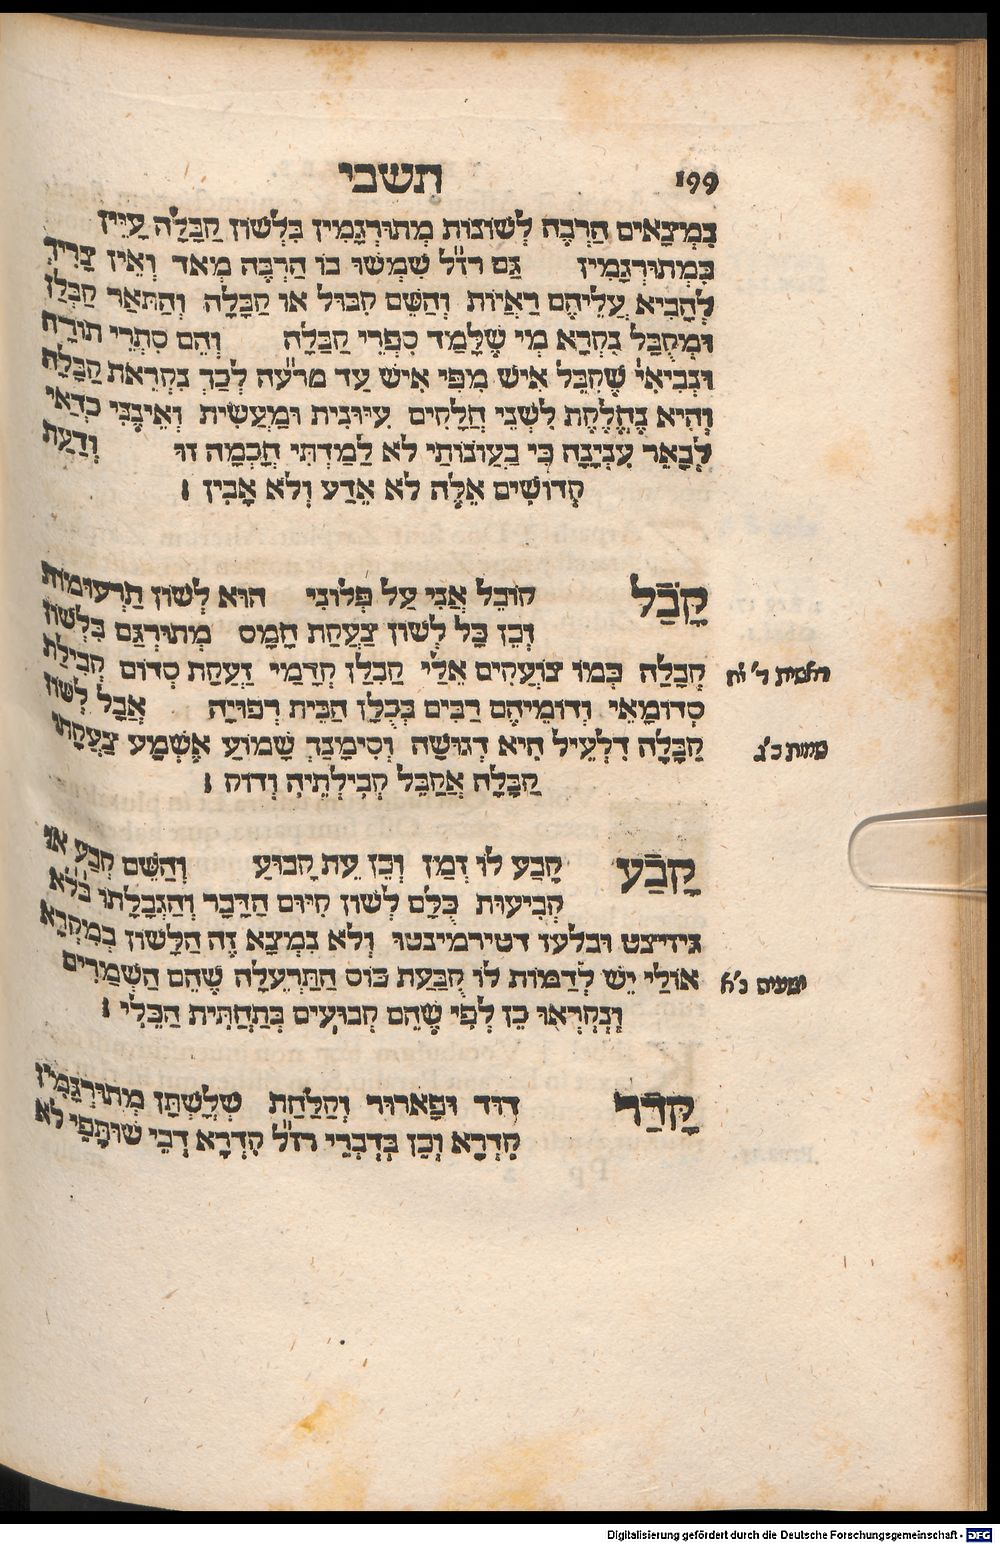 תשבי 199
נמצאים הרבה לשונות מתורגמין בלשון קבלה עיין
במתורגמין גם רז"ל שמשו בו הרבה מאד ואין צריך
להביא עליהם ראיות והשם קבול או קבלה והתאר קבלן
ומקובל נקרא מי שלמד ספרי קבלה והם סתרי תורה
ונביאי' שקבל איש מפי איש עד מר"עה לכך נקראת קבלה
והיא נחלקת לשני חלקים עיונית ומעשית ואינני כדאי
לבאר ענינה כי בעונותי לא למדתי חכמה זו ודעת
קדושים אלה לא אדע ולא אבין :
קבל קובל אני על פלוני הוא לשון תרעומות
וכן כל לשון צעקת חמס מתורגם בלשון
קבלה כמו צועקים אלי קבלן קדמי זעקת סדום קבילת
סדומאי ודומיהם רבים בכלן הבית רפויה אבל לשון
קבלה דלעיל היא דגושה וסימנך שמוע אשמע צעקתו
קבלה אקבל קבילתיה ודוק :
בראשית ד' וח
שמות כ"ב
קבע קבע לו זמן וכן עת קבוע והשם קבע או
קביעות כלם לשון קיום הדבר והגבלתו בל"א
גיזיצט ובלעז דטירמיבטו ולא נמצא זה הלשון במקרא
אולי יש לדמות לו קבעת כוס התרעלה שהם השמרים
ונקראו כן לפי שהם קבועים בתחתית הכלי :
ישעיה נ"א
קדר דוד ופארור וקלחת שלשתן מתורגמין
קדרא וכן בדברי רז"ל קדרא דבי שותפי לא
Digitalisierung gefördert durch die Deutsche Forschungsgemeinschaft - DFG